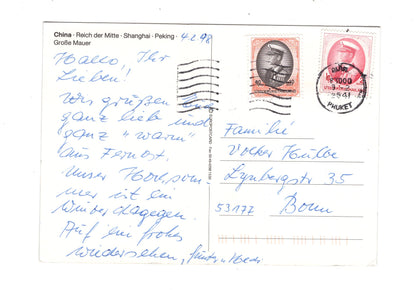 China · Reich der Mitte · Shanghai · Peking ·
Große Mauer
4.2.98
Hallo, Ihr
Lieben!
Wir grüßen Euch
ganz lieb und
ganz "warm"
aus Fernost.
Unser Hochsom
mer ist ein
Winter dagegen.
Auf ein frohes
Wiedersehen,
Familie
Volker Hülbe
Lynbergstr 35
53177 Bonn
PHUKET